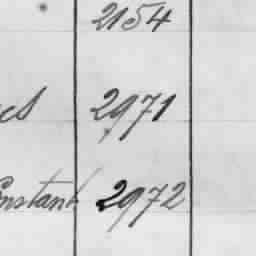 2154
2971
Constant 2972